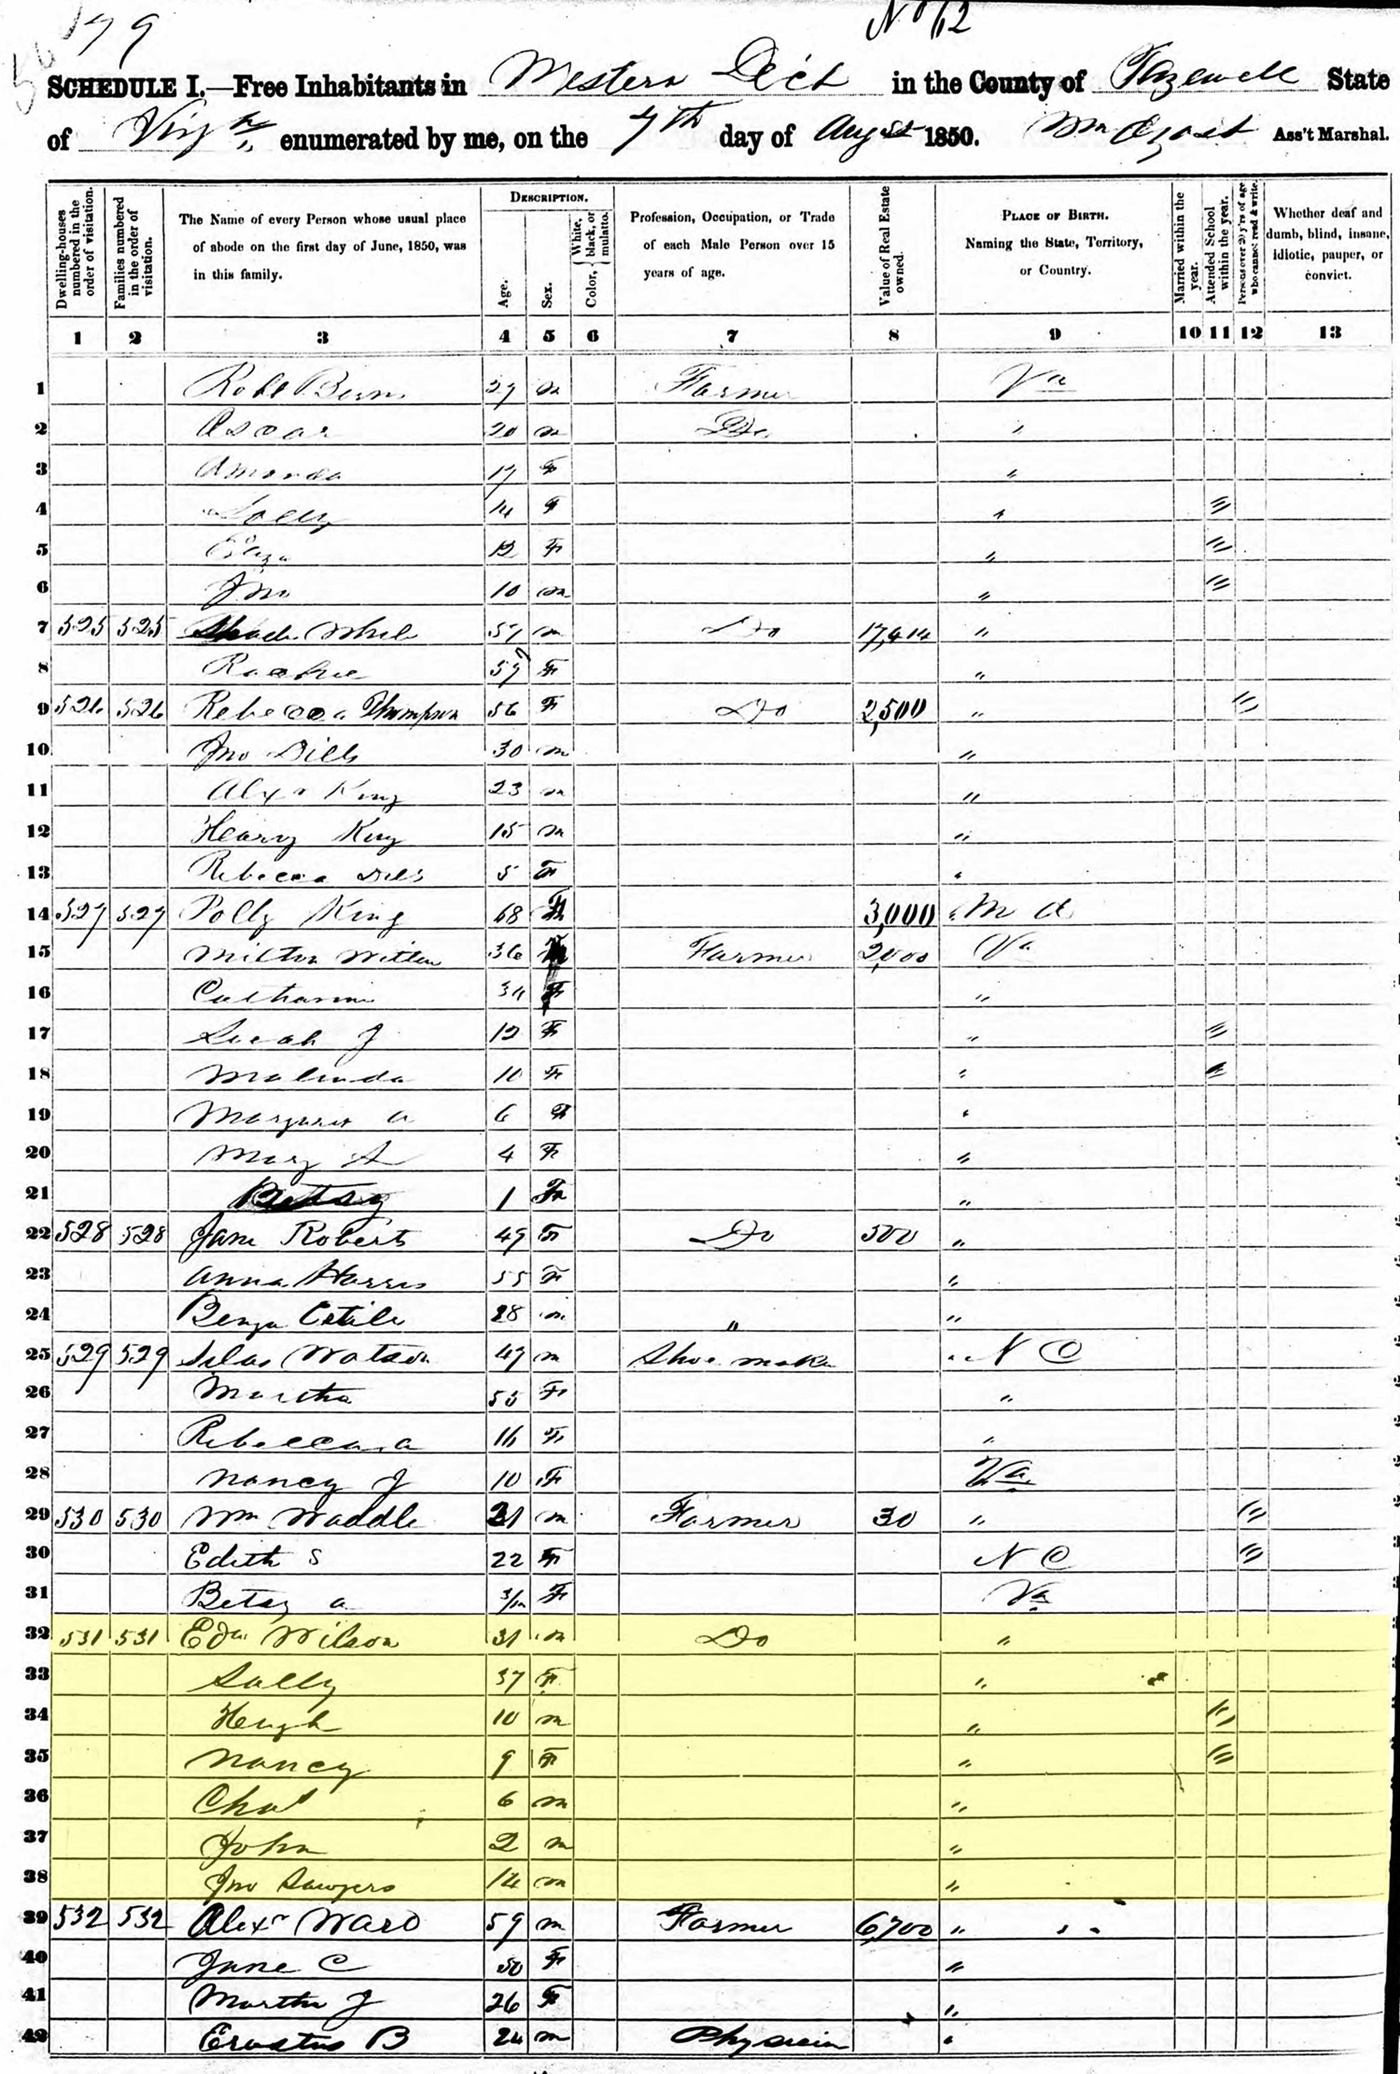 179
No 12
SCHEDULE I.—Free Inhabitants in Western Dist in the County of Tazewell State
of Virga enumerated by me, on the 7th day of Augst 1850. Wm Ass't Marshal.
Dwelling-houses numbered in the order of visitation.
Families numbered in the order of visitation.
The Name of every Person whose usual place of abode on the first day of June, 1850, was in this family.
DESCRIPTION.
Age.
Sex.
Color, { White, black, or mulatto.
Profession, Occupation, or Trade of each Male Person over 15 years of age.
Value of Real Estate owned.
PLACE OF BIRTH. Naming the State, Territory, or Country.
Married within the year.
Attended School within the year.
Persons over 20 y'rs of age who cannot read & write.
Whether deaf and dumb, blind, insane, idiotic, pauper, or convict.
1 2 3 4 5 6 7 8 9 10 11 12 13
1 Robt 29 m Farmer Va
2 Oscar 20 m Do "
3 Amanda 17 F "
4 14 F " //
5 Eliza 12 F " //
6 Jno 10 m " //
7 525 525 57 m Do "
8 57 F "
9 526 526 Rebecca Thompson 56 F Do 2,500 " //
10 Jno Dills 30 m "
11 Alexr King 23 m "
12 Henry King 15 m "
13 Rebecca Dills 5 F "
14 527 527 Polly King 68 F 3,000 Md
15 Milton Witten 36 m Farmer 2,000 Va
16 Catharine 34 F "
17 Sarah J 12 F " //
18 Malinda 10 F " //
19 Margaret A 6 F "
20 Mary A 4 F "
21 Betsy 1 F "
22 528 528 Jane Roberts 49 F Do 500 "
23 Anna Harris 55 F "
24 Benja 28 m " "
25 529 529 Silas Watson 47 m Shoe maker N C
26 Martha 55 F "
27 Rebecca A 16 F "
28 Nancy J 10 F Va
29 530 530 Wm Waddle 21 m Farmer 30 " //
30 Edith S 22 F N C //
31 Betsy A 3/12 F Va
32 531 531 Edw Wilson 31 m Do "
33 Sally 37 F "
34 Hugh 10 m " //
35 Nancy 9 F " //
36 Chas 6 m "
37 John 2 m "
38 Jno Sawyers 14 m "
39 532 532 Alexr Ward 59 m Farmer 6,700 "
40 Jane C 50 F "
41 Martha J 26 F "
42 Erastus B 24 m Physician "